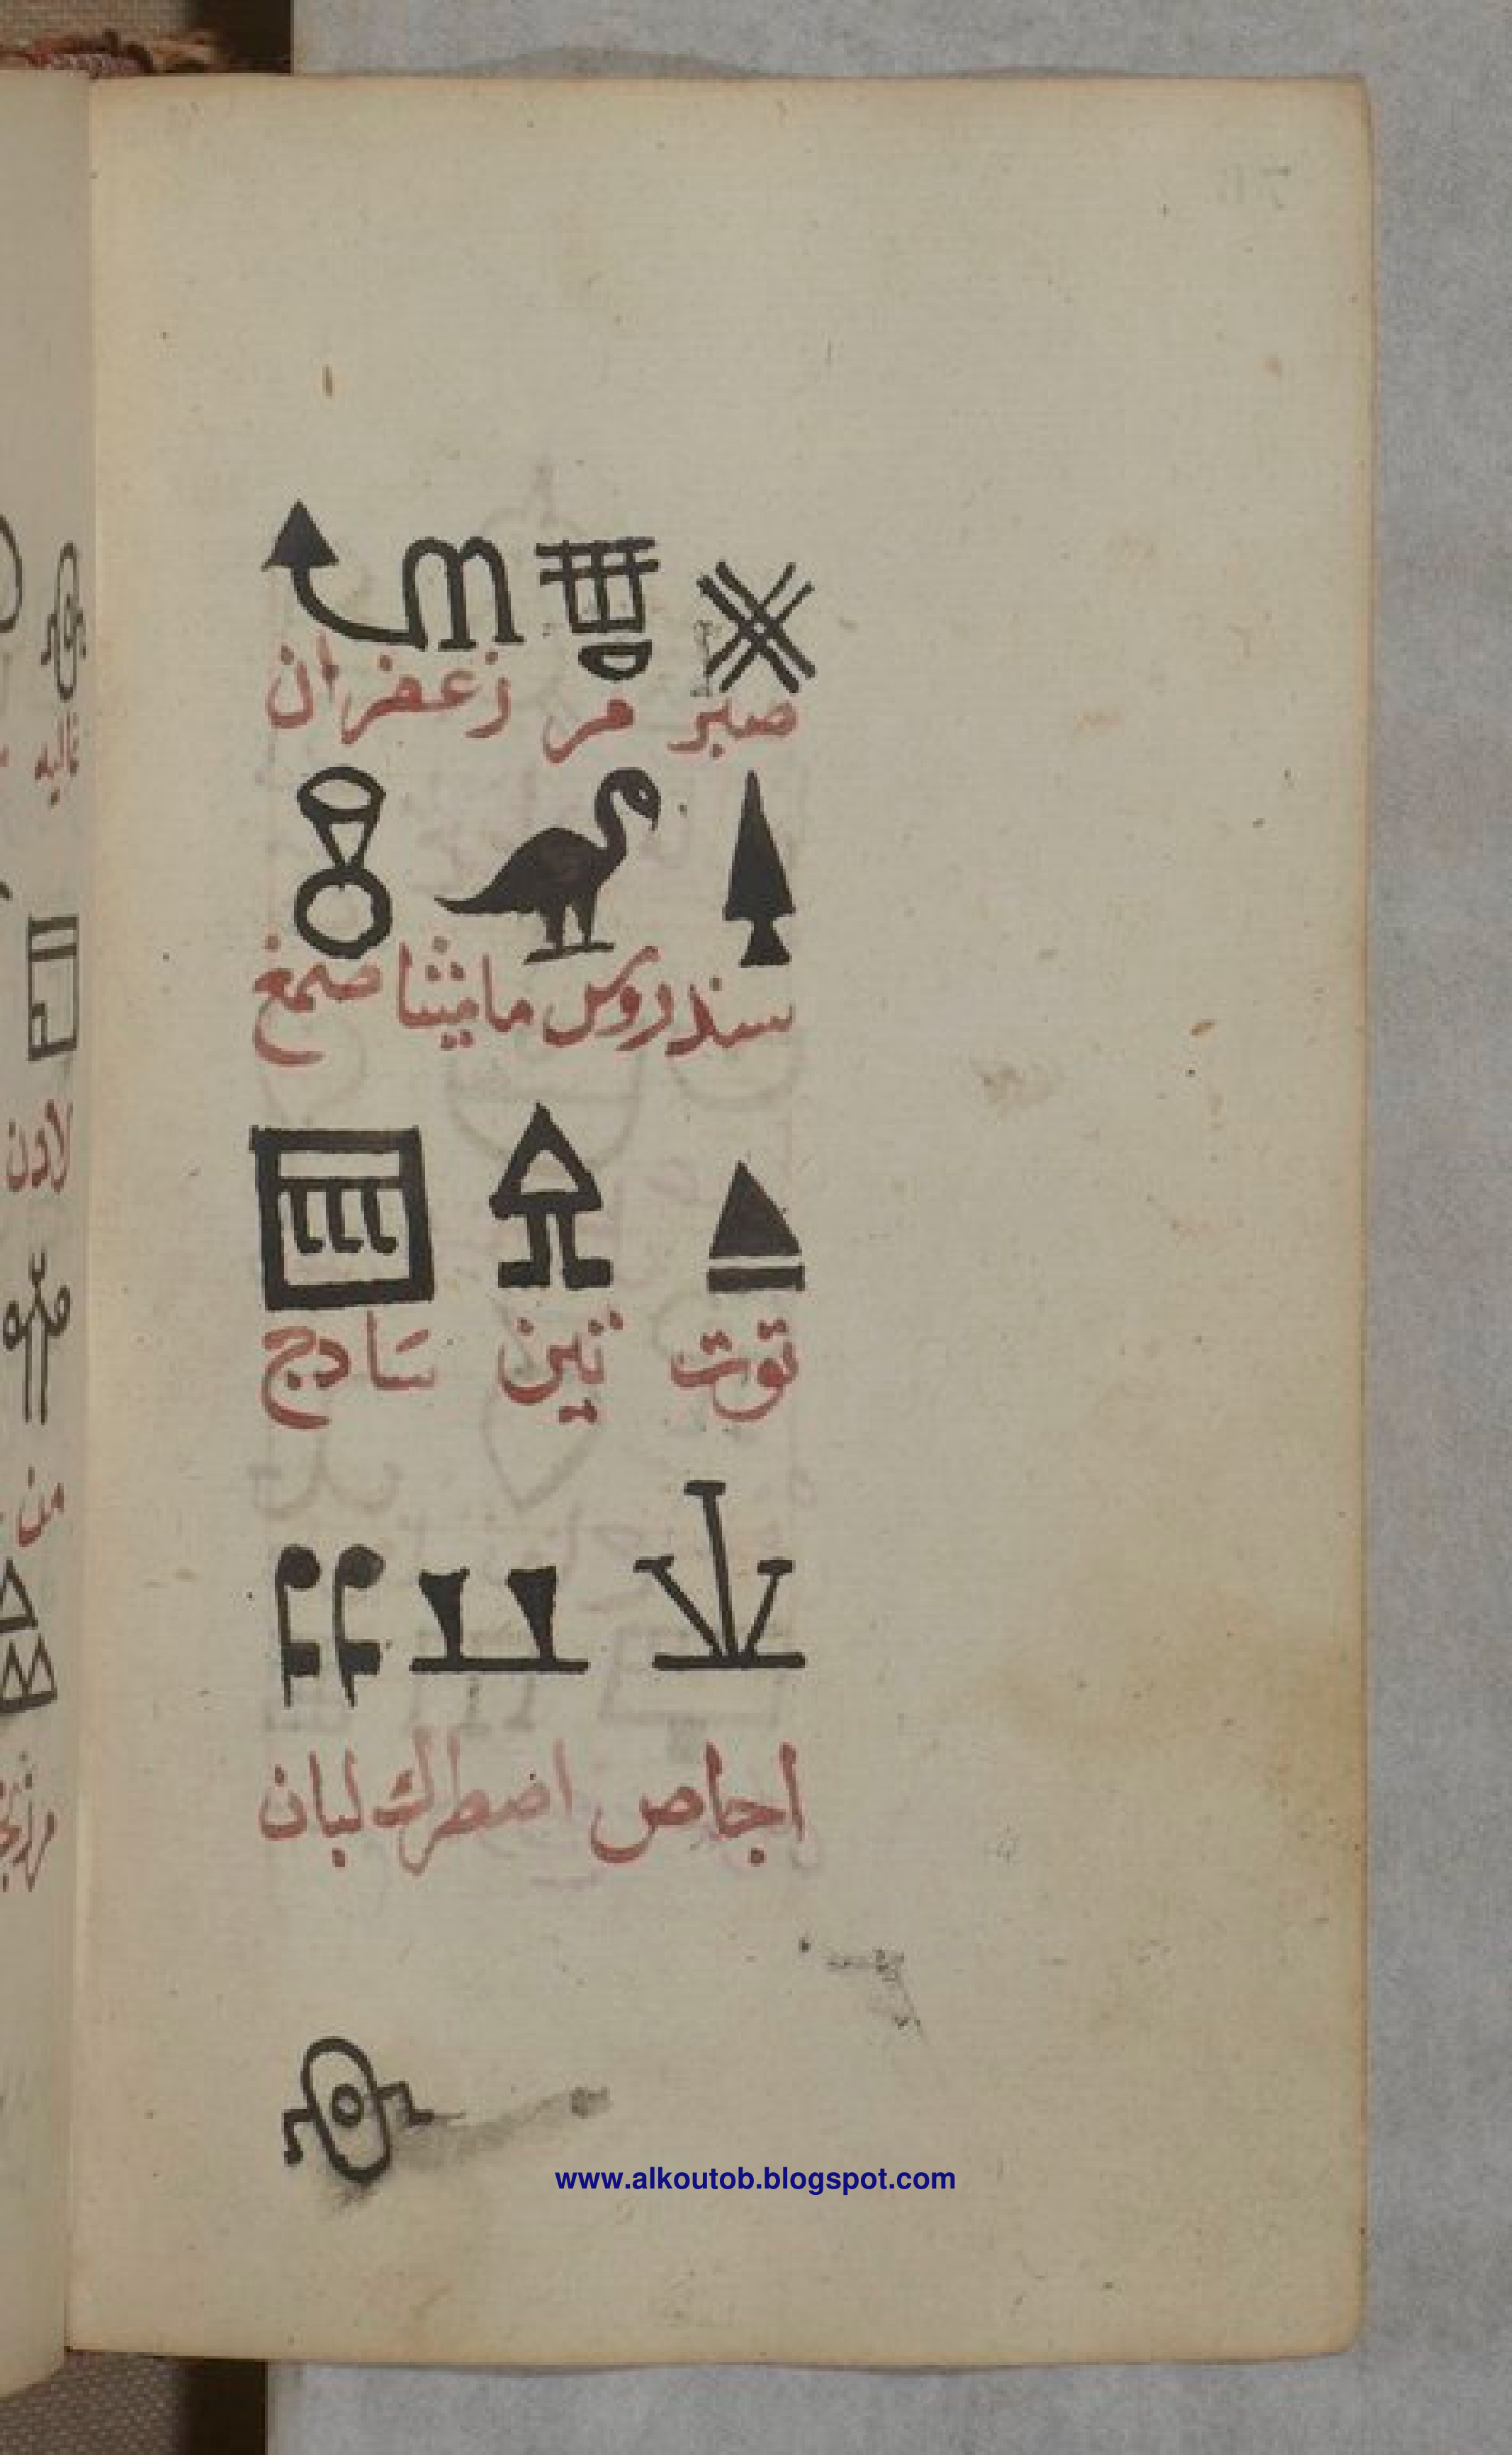 صبر مر زعفران
سندروس ماميثا صمغ
توت تين سادج
اجاص اصطرك لبان
www.alkoutob.blogspot.com
لادن
من